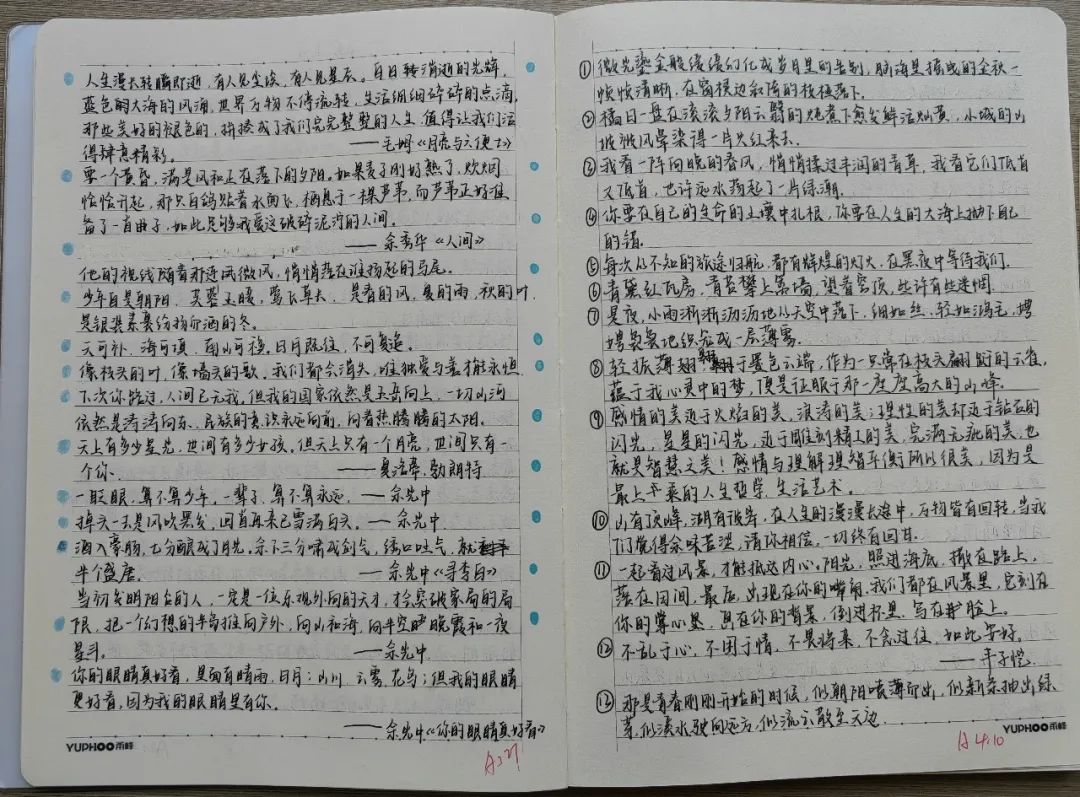 人生漫长转瞬即逝,有人见尘埃,有人见星辰。白日转消逝的光辉,
蓝色的大海的风海,世界万物不停流转,生活细细碎碎的点滴,
那些美好的褪色的,拼接成了我们完完整整的人生,值得让我们活
得肆意精彩。——毛姆《月亮与六便士》
要一个黄昏,满是风和正在落下的夕阳。如果麦子刚好熟了,炊烟
恰恰升起,那只白鸽贴着水面飞,栖息于一棵芦苇,而芦苇正好准
备了一首曲子,如此足够我爱这破碎泥泞的人间。
——余秀华《人间》
他的视线随着那逐风微风,悄悄落在谁扬起的马尾。
少年自是朝阳,芙蓉玉暖,莺飞草长,是春的风,夏的雨,秋的叶,
是银装素裹纷扬的冬。
天可补,海可填,南山可移,日月既往,不可复追。
像枝头的叶,像墙头的歌,我们都会消失,唯独爱与善才能永恒
下次你路过,人间已无我,但我的国家依然是五岳向上,一切山河
依然是滔滔向东,民族的意识永远向前,向着热腾腾的太阳。
天上有多少星光,世间有多少女孩。但天上只有一个月亮,世间只有
个你。——奥洛帝·勃朗特
一眨眼,算不算少年,一辈子,算不算永远。——余光中
掉头一去是风吹黑发,回首再来已雪满白头。——余光中
酒入豪肠,七分酿成了月光,余下三分啸成剑气,绣口吐气,就
半个盛唐。——余光中《寻李白》
当初发明阳台的人,一定是一位乐观外向的天才,才会突破家居的局
限,把一个幻想的半岛推向户外,向山和海,向半空晚霞和一夜
星斗。——余光中
你的眼睛真好看,里面有晴雨,日月,山川,云雾,花鸟;但我的眼睛
更好看,因为我的眼睛里有你。
——余光中《你的眼睛真好看》
YUPHOO雨峰
A3.27
①微光鎏金般缓缓幻化成岁月里的告别,脑海里播成的金秋一
帧帧清晰,在窗棂边斜阳的枝桠落下。
②橘日一盘在滚滚夕阳云翳的炖煮下愈发鲜活灿黄,小城的山
坡被风晕染得一片火红来去。
③我看一阵向晚的春风,悄悄揉过丰润的青草,我看它们低首
又低首,也许远水荡起了一片绿潮。
④你要在自己的生命的土壤中扎根,你要在人生的大海上抛下自己
的锚。
⑤每次从不知的旅途归航,都有辉煌的灯火,在黑夜中等待我们。
⑥青黛红瓦房,青苔攀上高墙,望着穹顶,些许有些迷惘。
⑦是夜,小雨淅淅沥沥地从天空中落下,细如丝,轻如鸿毛,袅
袅袅地织成一层薄雾。
⑧轻振薄翅翱翔于墨色云端,作为一只常在枝头翩跹的云雀,
蕴于我心灵中的梦,便是征服于那一座座高大的山峰。
⑨感情的美近于火焰的美、浪涛的美;理性的美却近于钻石的
闪光,星星的闪光,近于雕刻精工的美,完满无疵的美,也
就是智慧之美!感情与理解理智平衡所以很美,因为是
最上乘的人生哲学,生活艺术。
⑩山有顶峰,湖有彼岸,在人生的漫漫长途中,万物皆有回转,当我
们觉得余味苦涩,请你相信,一切终有回甘。
⑪一起看过风景,才能抵达内心。阳光,照进海底,撒在路上,
落在田间,最后,出现在你的嘴角,我们都在风景里,它刻在
你的掌心里,画在你的背景,倒进杯里,写在脸上。
⑫不乱于心,不困于情,不畏将来,不念过往,如此安好。
——丰子恺
⑬那是青春刚刚开始的时候,似朝阳喷薄而出,似新条抽出绿
芽,似溪水驶向远方,似流云散至天边
YUPHOO雨峰
A4.10